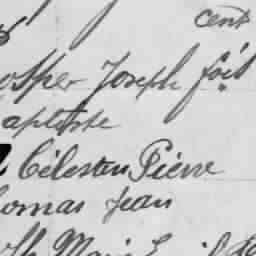 cent
osper Joseph fois
aptiste
Célestin Pierre
homas Jean